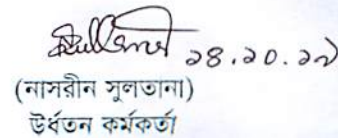 ২৪.১০.১৯
(নাসরীন সুলতানা)
উর্ধতন কর্মকর্তা